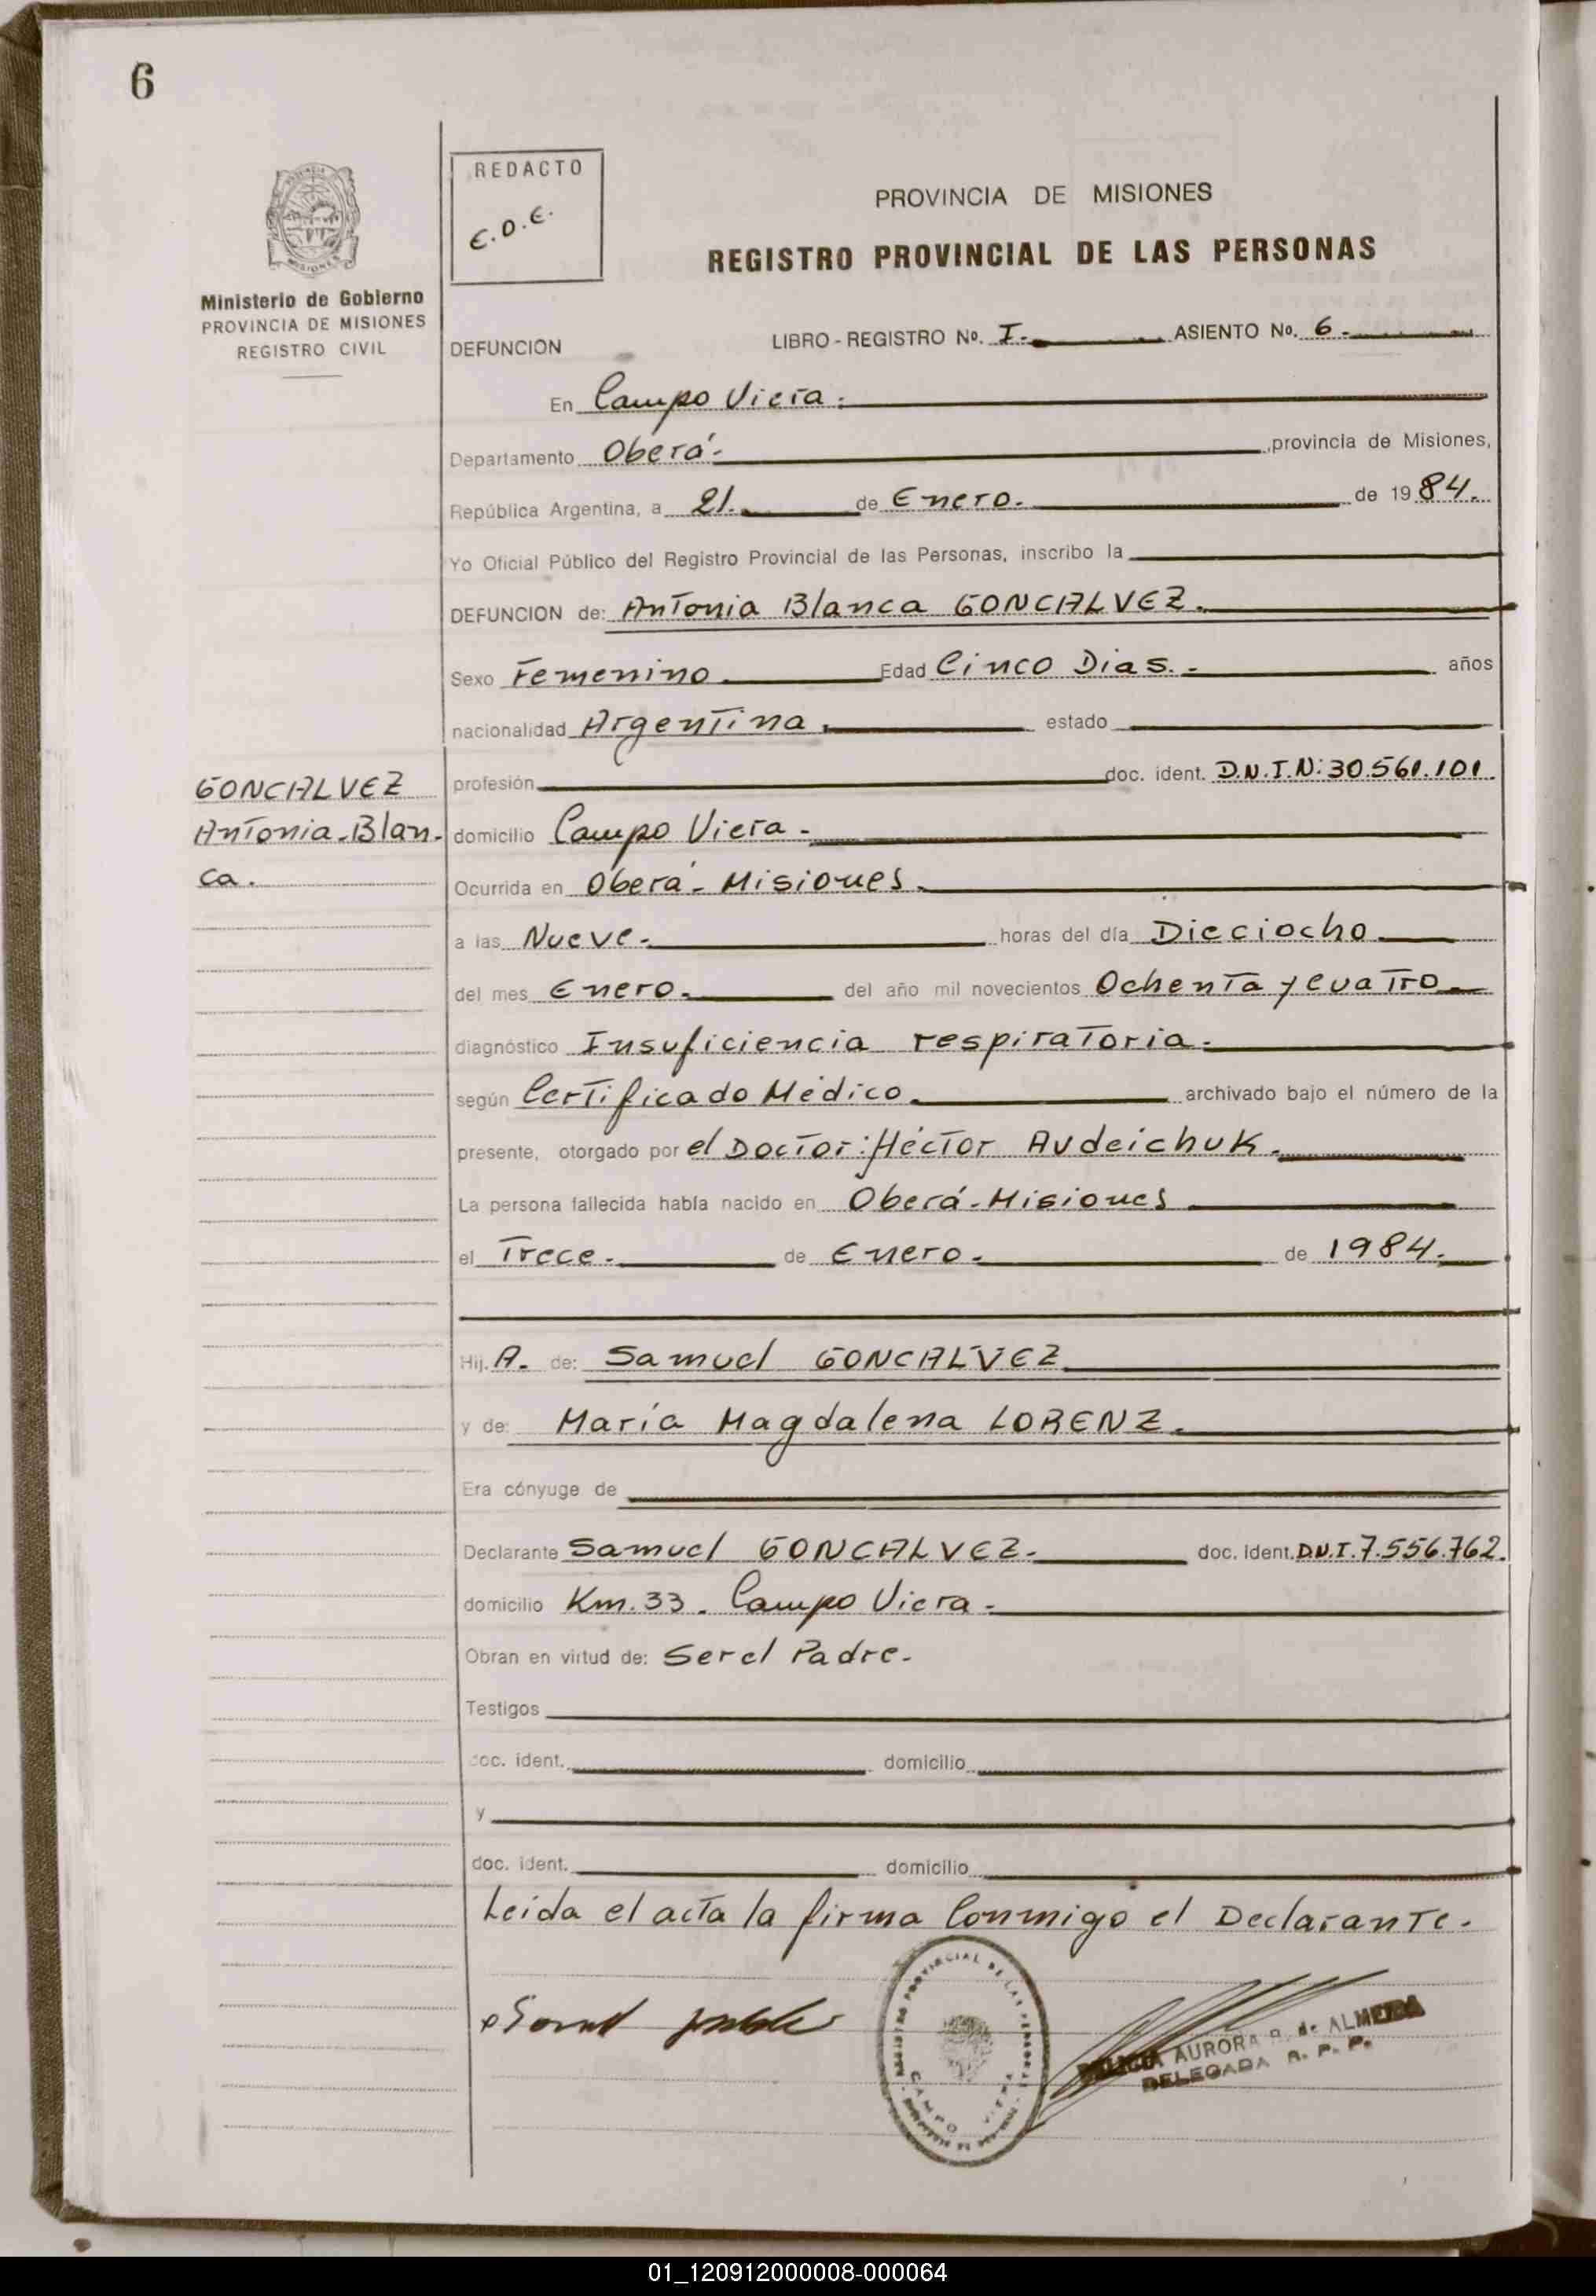 6
REDACTO
E.D.E.
PROVINCIA DE MISIONES
REGISTRO PROVINCIAL DE LAS PERSONAS
MISIONES
Ministerio de Gobierno
PROVINCIA DE MISIONES
REGISTRO CIVIL
DEFUNCION LIBRO - REGISTRO No. I.- ASIENTO No. 6.-
En Campo Viera.-
Departamento Oberá.- provincia de Misiones,
República Argentina, a 21.- de Enero.- de 1984.
Yo Oficial Público del Registro Provincial de las Personas, inscribo la
DEFUNCION de: Antonia Blanca GONCALVEZ.
Sexo Femenino Edad Cinco Dias.- años
nacionalidad Argentina. estado
GONCALVEZ
Antonia-Blan-
ca.
profesión doc. ident. D.N.I.N:30.561.101.
domicilio Campo Viera.-
Ocurrida en Oberá-Misiones.
a las Nueve.- horas del día Dieciocho
del mes Enero.- del año mil novecientos Ochenta y cuatro
diagnóstico Insuficiencia respiratoria.-
según Certificado Médico. archivado bajo el número de la
presente, otorgado por el Doctor: Héctor Audeichuk.
La persona fallecida había nacido en Oberá-Misiones
el Trece.- de Enero.- de 1984.
Hij. A. de: Samuel GONCALVEZ
y de: María Magdalena LORENZ.
Era cónyuge de
Declarante Samuel GONCALVEZ.- doc. ident. D.N.I.7.556.762.
domicilio Km.33. Campo Viera.-
Obran en virtud de: Ser el Padre.-
Testigos
doc. ident. domicilio
y
doc. ident. domicilio
Leida el acta la firma Conmigo el Declarante.-
REGISTRO PROVINCIAL DE LAS PERSONAS
CAMPO VIERA
AURORA R. de ALMEIDA
DELEGADA R. P. P.
01_120912000008-000064